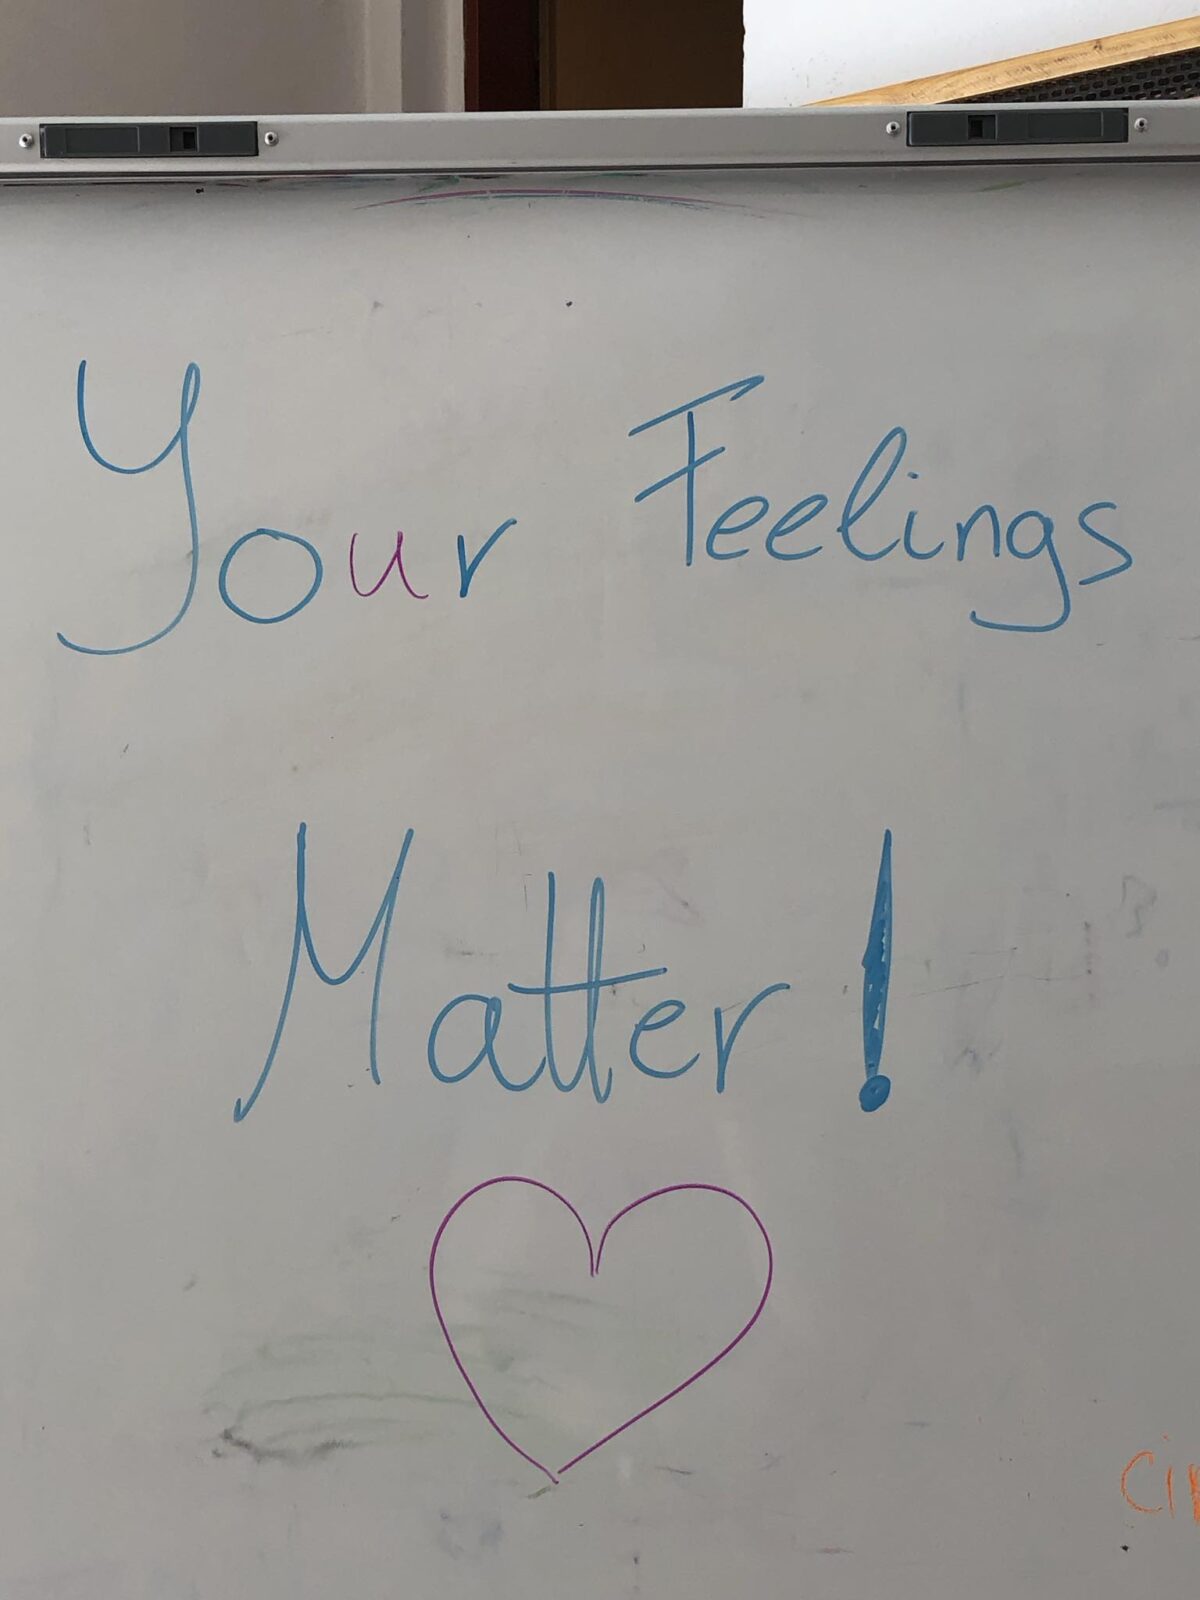 Your Feelings
Matter!